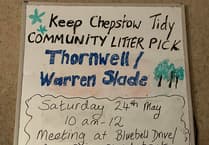 Keep Chepstow Tidy
COMMUNITY LITTER PICK
Thornwell/
Warren Slade
Saturday 24th May
10 am-12
Meeting at Bluebell Drive/